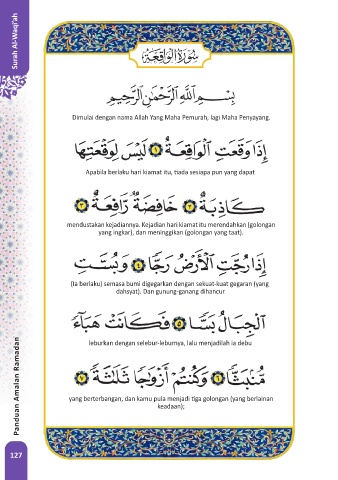 Surah Al-Waqi'ah
سُورَةُ الْوَاقِعَةِ
بِسْمِ اللَّهِ الرَّحْمَٰنِ الرَّحِيمِ
Dimulai dengan nama Allah Yang Maha Pemurah, lagi Maha Penyayang.
إِذَا وَقَعَتِ الْوَاقِعَةُ ١ لَيْسَ لِوَقْعَتِهَا
Apabila berlaku hari kiamat itu, tiada sesiapa pun yang dapat
كَاذِبَةٌ ٢ خَافِضَةٌ رَّافِعَةٌ ٣
mendustakan kejadiannya. Kejadian hari kiamat itu merendahkan (golongan
yang ingkar), dan meninggikan (golongan yang taat).
إِذَا رُجَّتِ الْأَرْضُ رَجًّا ٤ وَبُسَّتِ
(Ia berlaku) semasa bumi digegarkan dengan sekuat-kuat gegaran (yang
dahsyat). Dan gunung-ganang dihancur
الْجِبَالُ بَسًّا ٥ فَكَانَتْ هَبَاءً
leburkan dengan selebur-leburnya, lalu menjadilah ia debu
مُّنبَثًّا ٦ وَكُنتُمْ أَزْوَاجًا ثَلَاثَةً ٧
yang berterbangan, dan kamu pula menjadi tiga golongan (yang berlainan
keadaan);
Panduan Amalan Ramadan
127